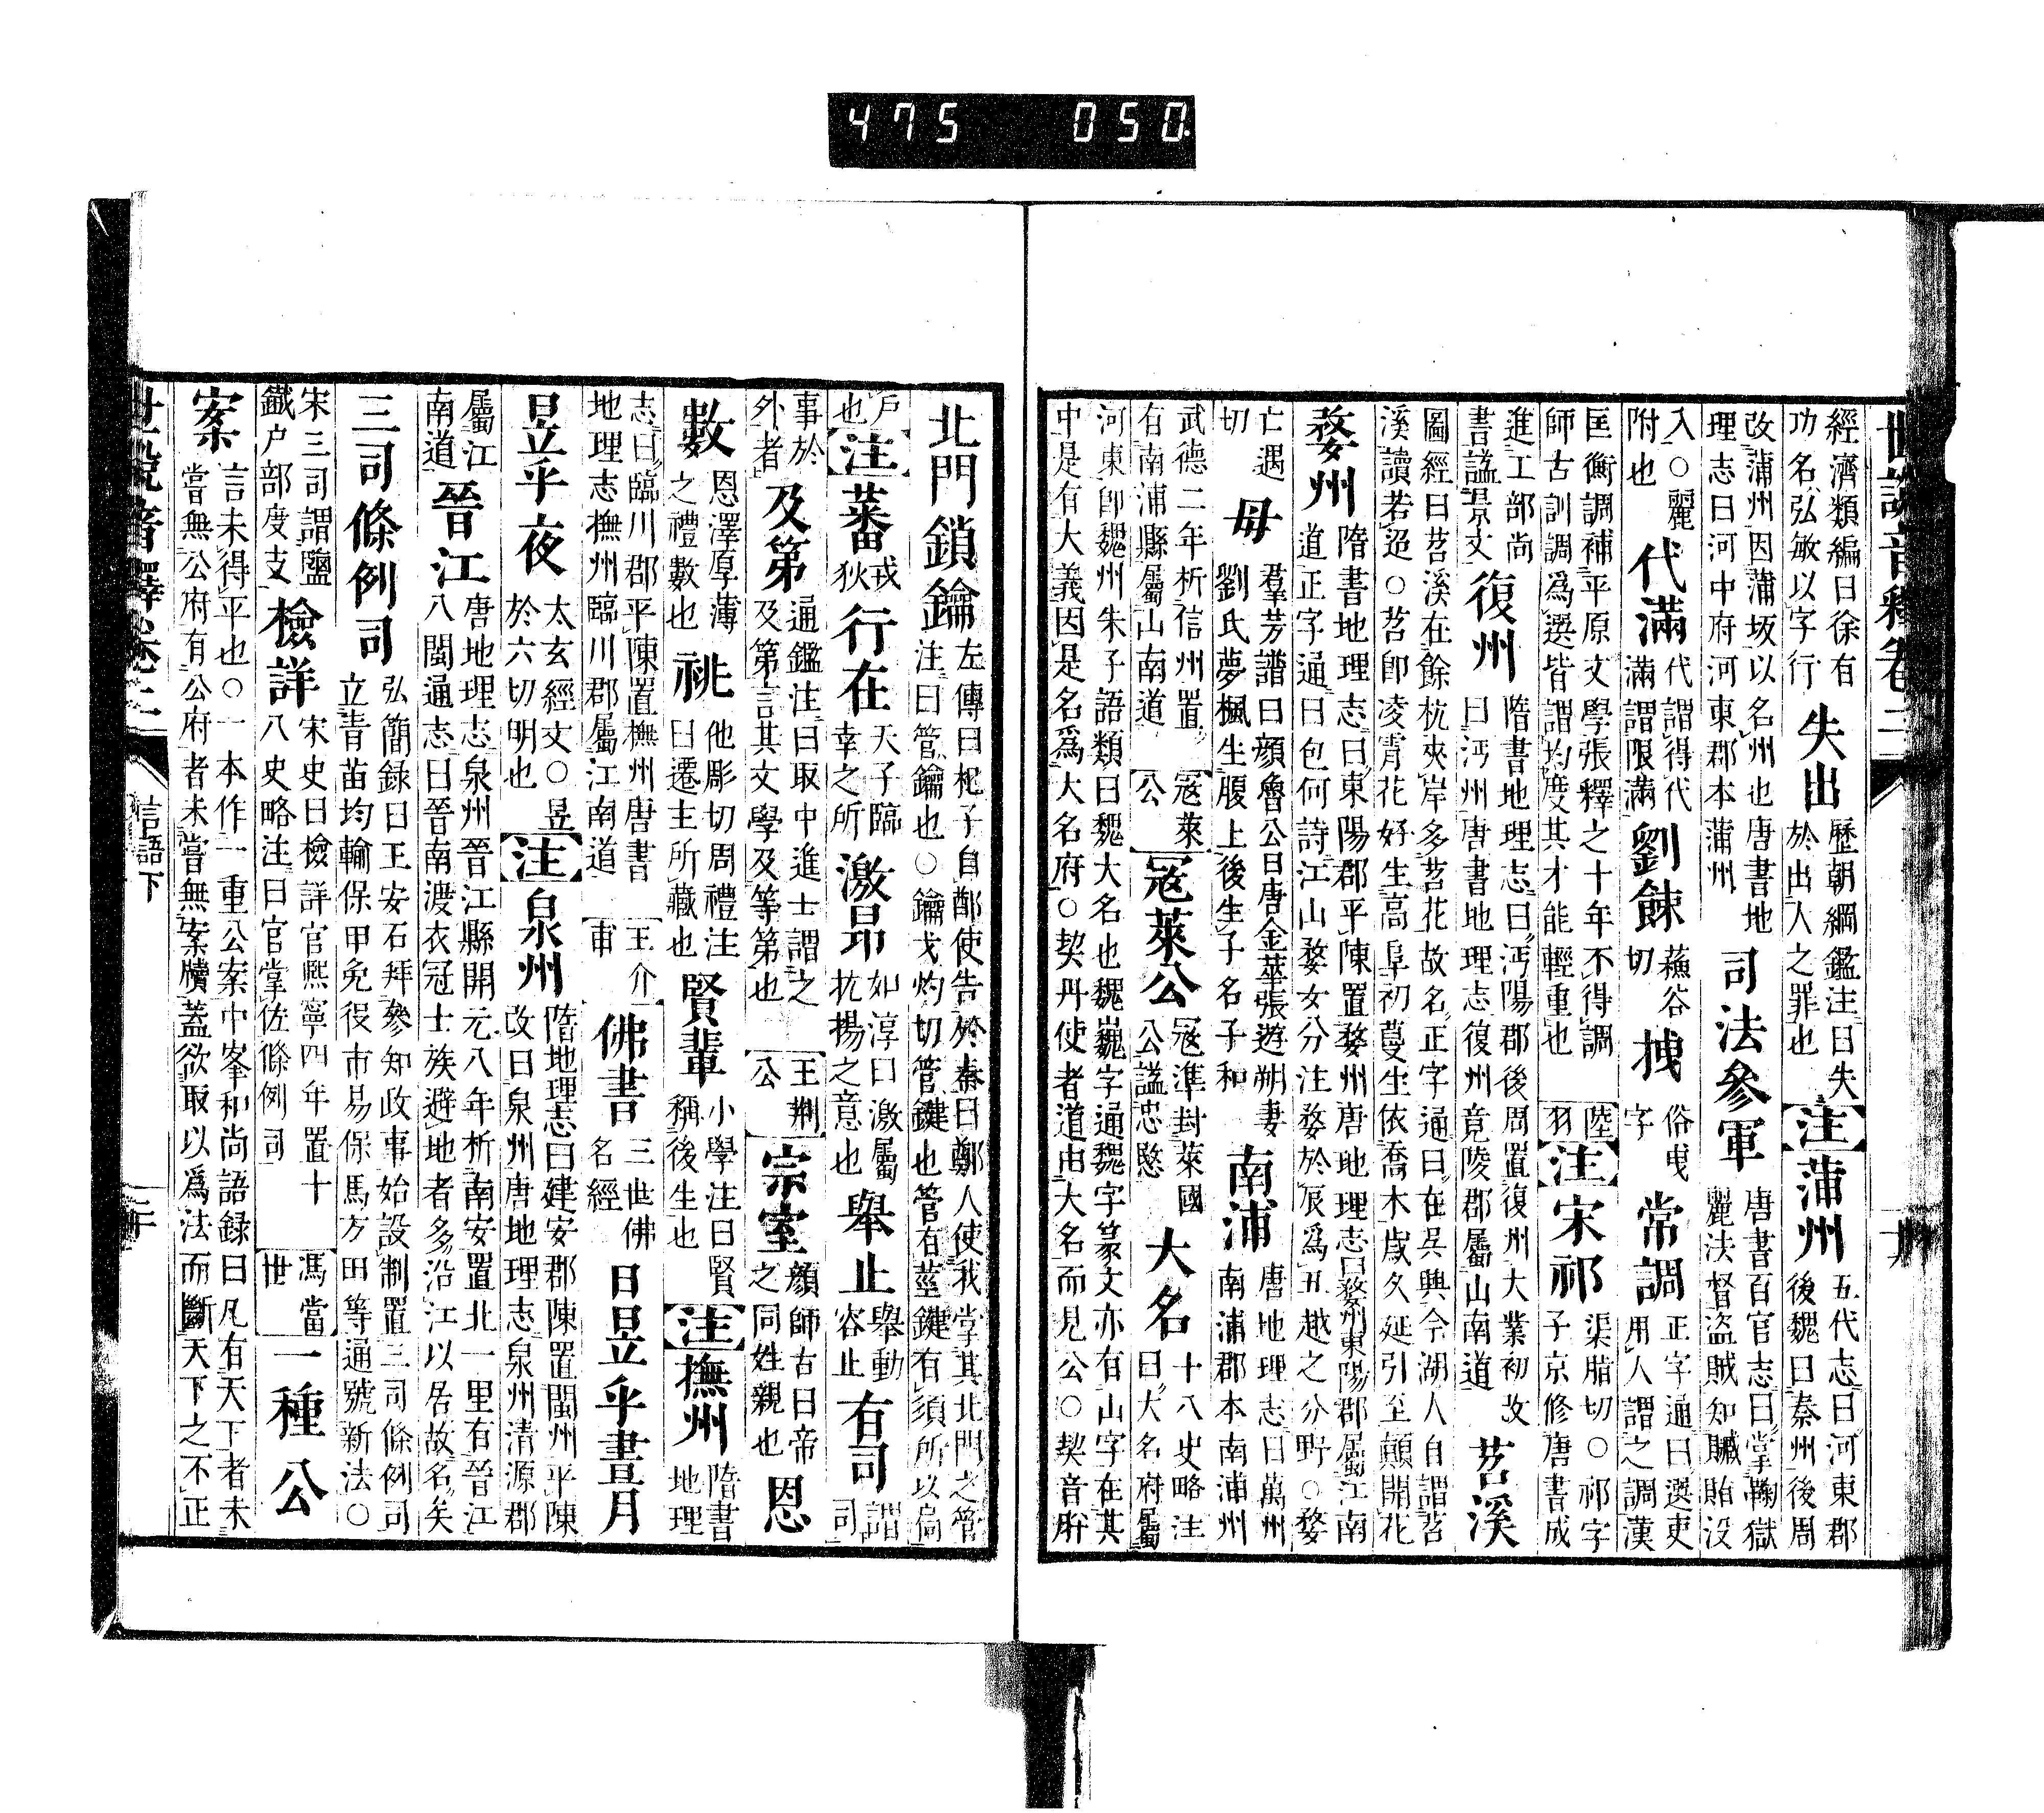 475 050
經濟類編曰徐有功名弘敏以字行 失出 歷朝綱鑑注曰失於出人之罪也 注 蒲州 五代志曰河東郡後魏曰秦州後周
改蒲州因蒲坂以名州也唐書地理志曰河中府河東郡本蒲州 司法參軍 唐書百官志曰掌鞠獄麗法督盜賊知贓賄没
入○麗附也 代滿 代謂得代滿謂限滿 劉餗 蘓谷切 拽 俗曳字 常調 正字通曰選吏用人謂之調漢
匡衡調補平原文學張釋之十年不得調師古訓調爲選皆謂均度其才能輕重也 陸羽 注 宋祁 渠脂切○祁字子京修唐書成
進工部尚書謚景文 復州 隋書地理志曰沔陽郡後周置復州大業初改曰沔州唐書地理志復州竟陵郡屬山南道 苕溪
圖經曰苕溪在餘杭夾岸多苕花故名正字通曰在吳興今湖人自謂苕溪讀若迢○苕卽凌霄花好生高阜初蔓生依喬木歲久延引至顛開花
婺州 隋書地理志曰東陽郡平陳置婺州唐地理志曰婺州東陽郡屬江南道正字通曰包何詩江山婺女分注婺於辰爲丑越之分野○婺
亡遇切 母 羣芳譜曰顔魯公曰唐金華張遊朔妻劉氏夢楓生腹上後生子名子和 南浦 唐地理志曰萬州南浦郡本南浦州
武德二年析信州置有南浦縣屬山南道 寇萊公 寇萊公 寇準封萊國公謚忠愍 大名 十八史略注曰大名府屬
河東卽魏州朱子語類曰魏大名也魏巍字通魏字篆文亦有山字在其中是有大義因是名爲大名府○契丹使者道由大名而見公○契音
北門鎖鑰 左傳曰杞子自鄭使告於秦曰鄭人使我掌其北門之管注曰管鑰也○鑰戈灼切管鍵也管有莖鍵有須所以扃
戸也 注 蕃 戎狄 行在 天子臨幸之所 激昻 如淳曰激屬抗揚之意也 舉止 舉動容止 有司 謂司
事於外者 及第 通鑑注曰取中進士謂之及第言其文學及等第也 王荆公 宗室 顔師古曰帝之同姓親也 恩
數 恩澤厚薄之禮數也 祧 他彫切周禮注曰遷主所藏也 賢輩 小學注曰賢稱後生也 注 撫州 隋書地理
志曰臨川郡平陳置撫州唐書地理志撫州臨川郡屬江南道 王介甫 佛書 三世佛名經 日昱乎晝月
昱乎夜 太玄經文○昱於六切明也 注 泉州 隋地理志曰建安郡陳置閩州平陳改曰泉州唐地理志泉州清源郡
屬江南道 晉江 唐地理志泉州晉江縣開元八年析南安置北一里有晉江八閩通志曰晉南渡衣冠士族避地者多沿江以居故名矣
三司條例司 弘簡錄曰王安石拜參知政事始設制置三司條例司立靑苗均輸保甲免役市易保馬方田等通號新法○
宋三司謂鹽鐵户部度支 檢詳 宋史曰檢詳官熙寧四年置十八史略注曰官掌佐條例司 馮當世 一種公
案 言未得平也○一本作一重公案中峯和尚語録曰凡有天下者未嘗無公府有公府者未嘗無案牘蓋欲取以爲法而斷天下之不正
言語下